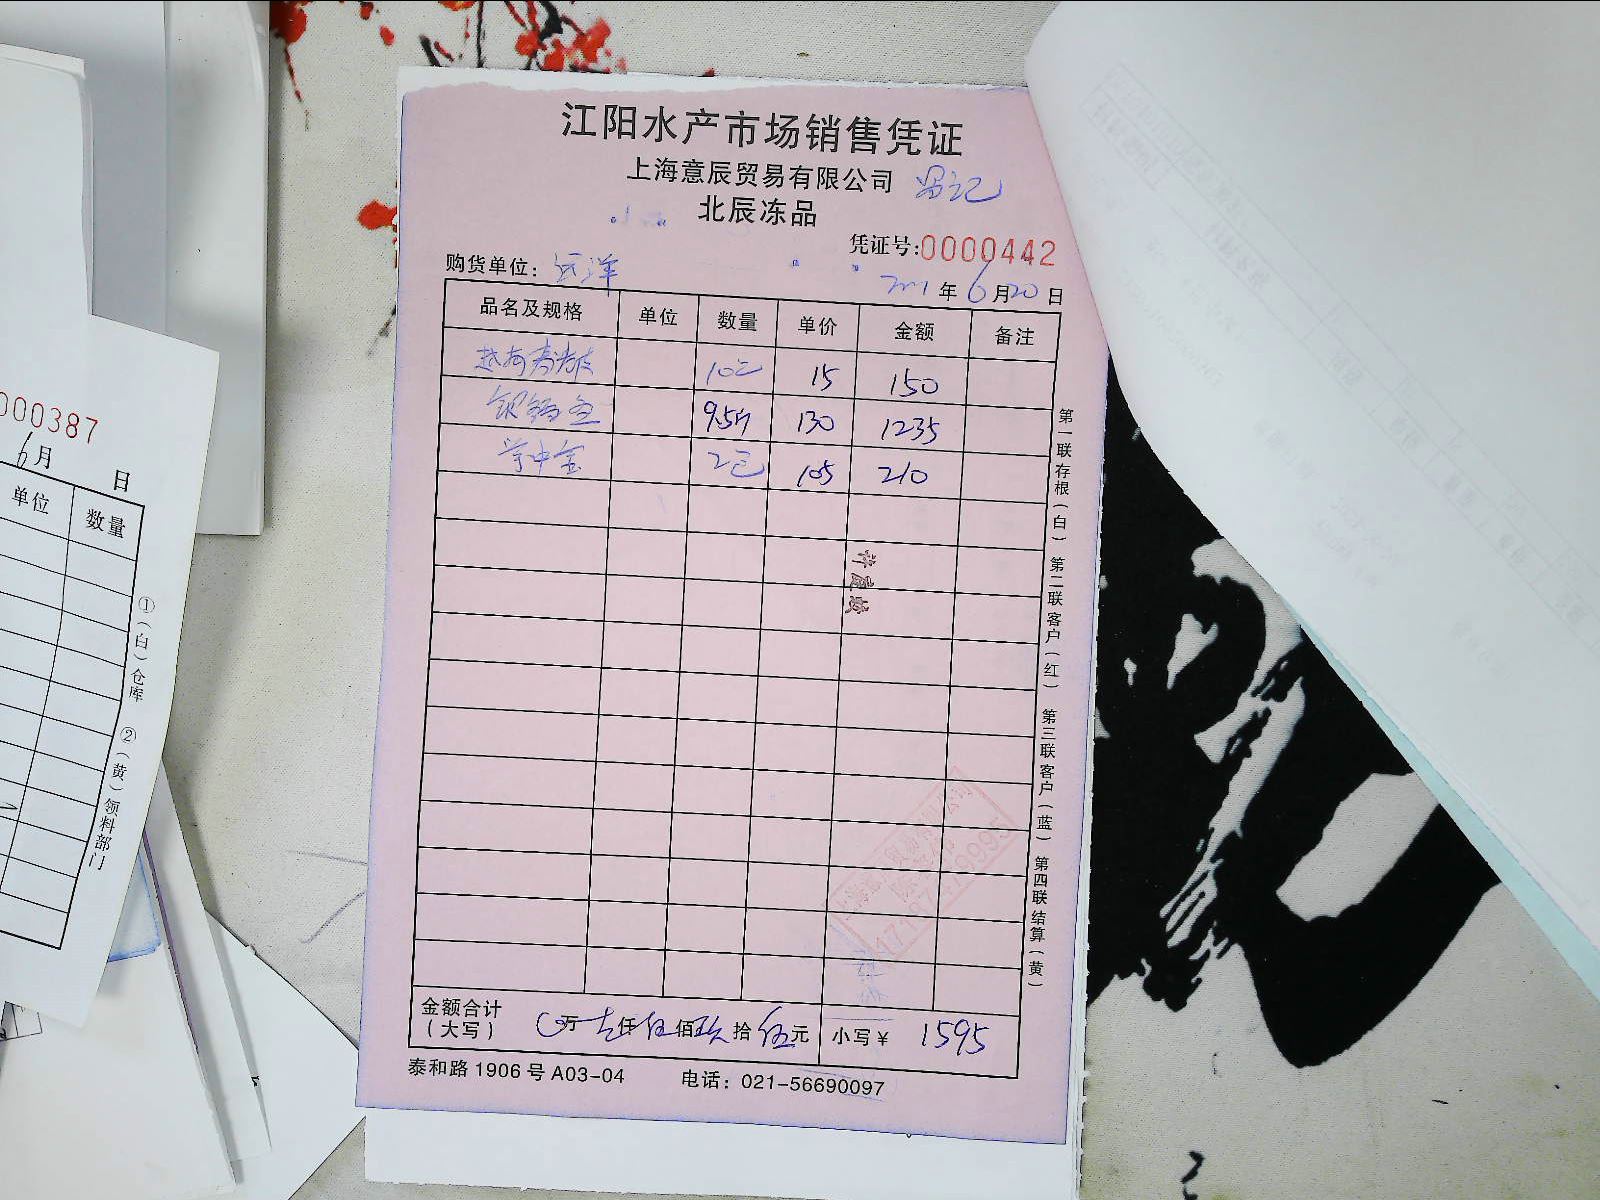 江阳水产市场销售凭证
上海意辰贸易有限公司
北辰冻品
凭证号:0000442
购货单位: 远洋
年 6月20日
品名及规格 单位 数量 单价 金额 备注
10 15 150
银鳕鱼 9.5斤 130 1235
2 105 210
第一联存根(白) 第二联客户(红) 第三联客户(蓝) 第四联结算(黄)
金额合计
(大写) 万 仟伍佰玖拾伍元 小写¥ 1595
泰和路1906号A03-04 电话: 021-56690097
000387
6月 日
单位 数量
①(白)仓库 ②(黄)领料部门